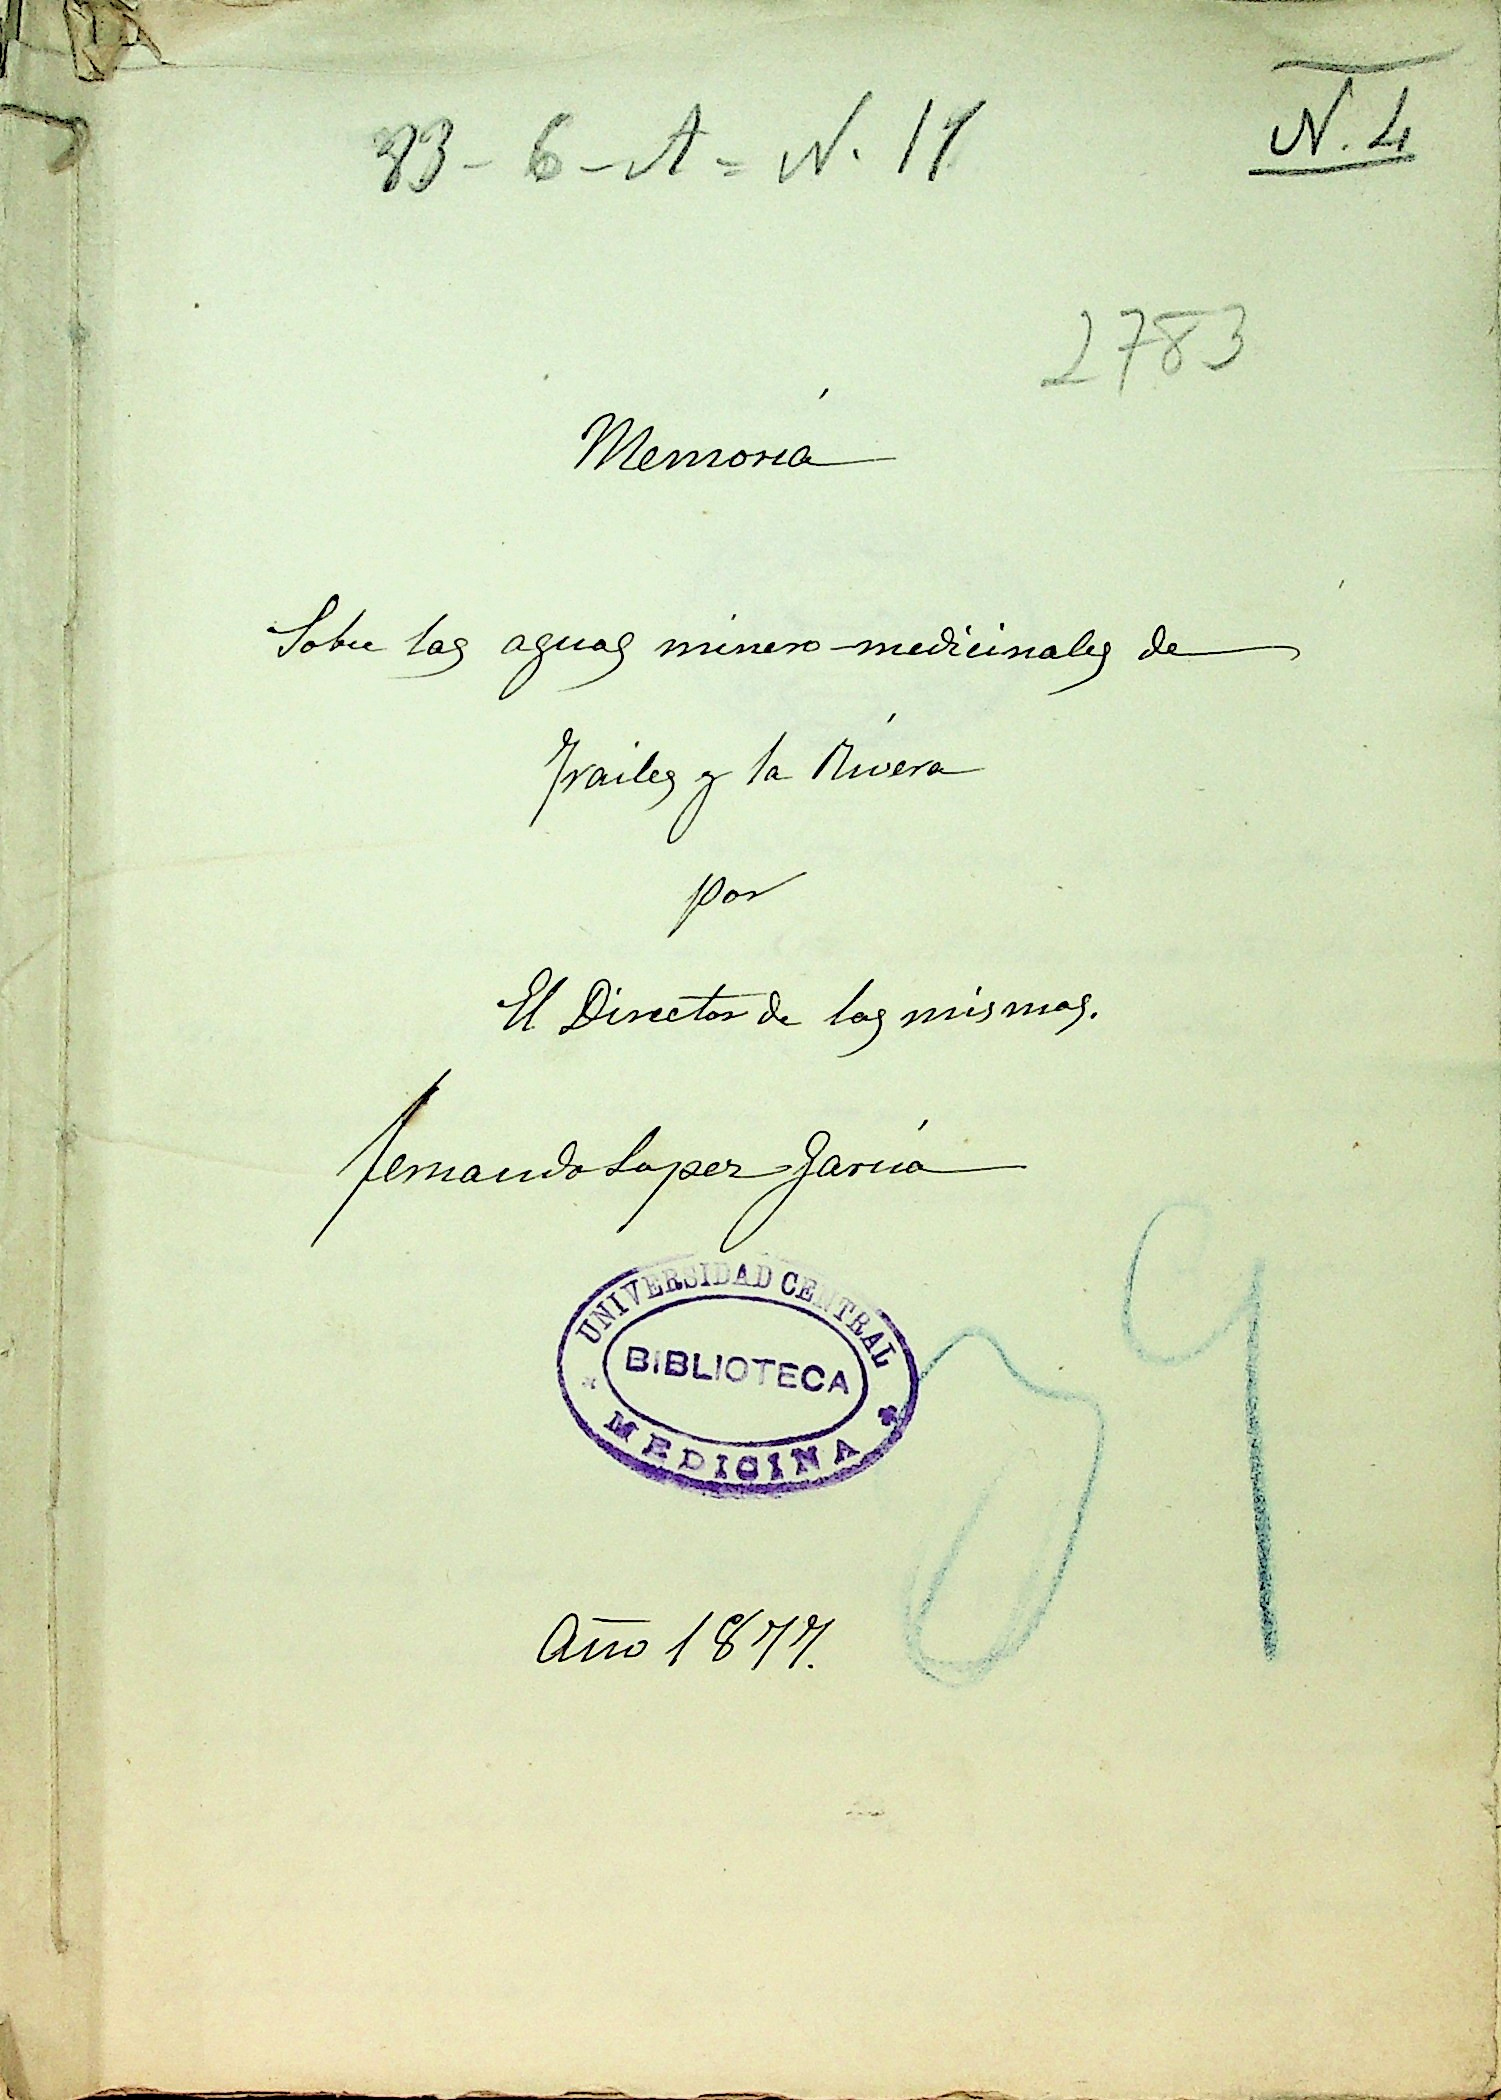 83-6-A=N. 17
N. 4
2783
Memoria
Sobre las aguas minero-medicinales de
Frailes y la Rivera
por
El Director de las mismas.
Fernando Lopez Garcia
UNIVERSIDAD CENTRAL
BIBLIOTECA
MEDICINA
Año 1877.